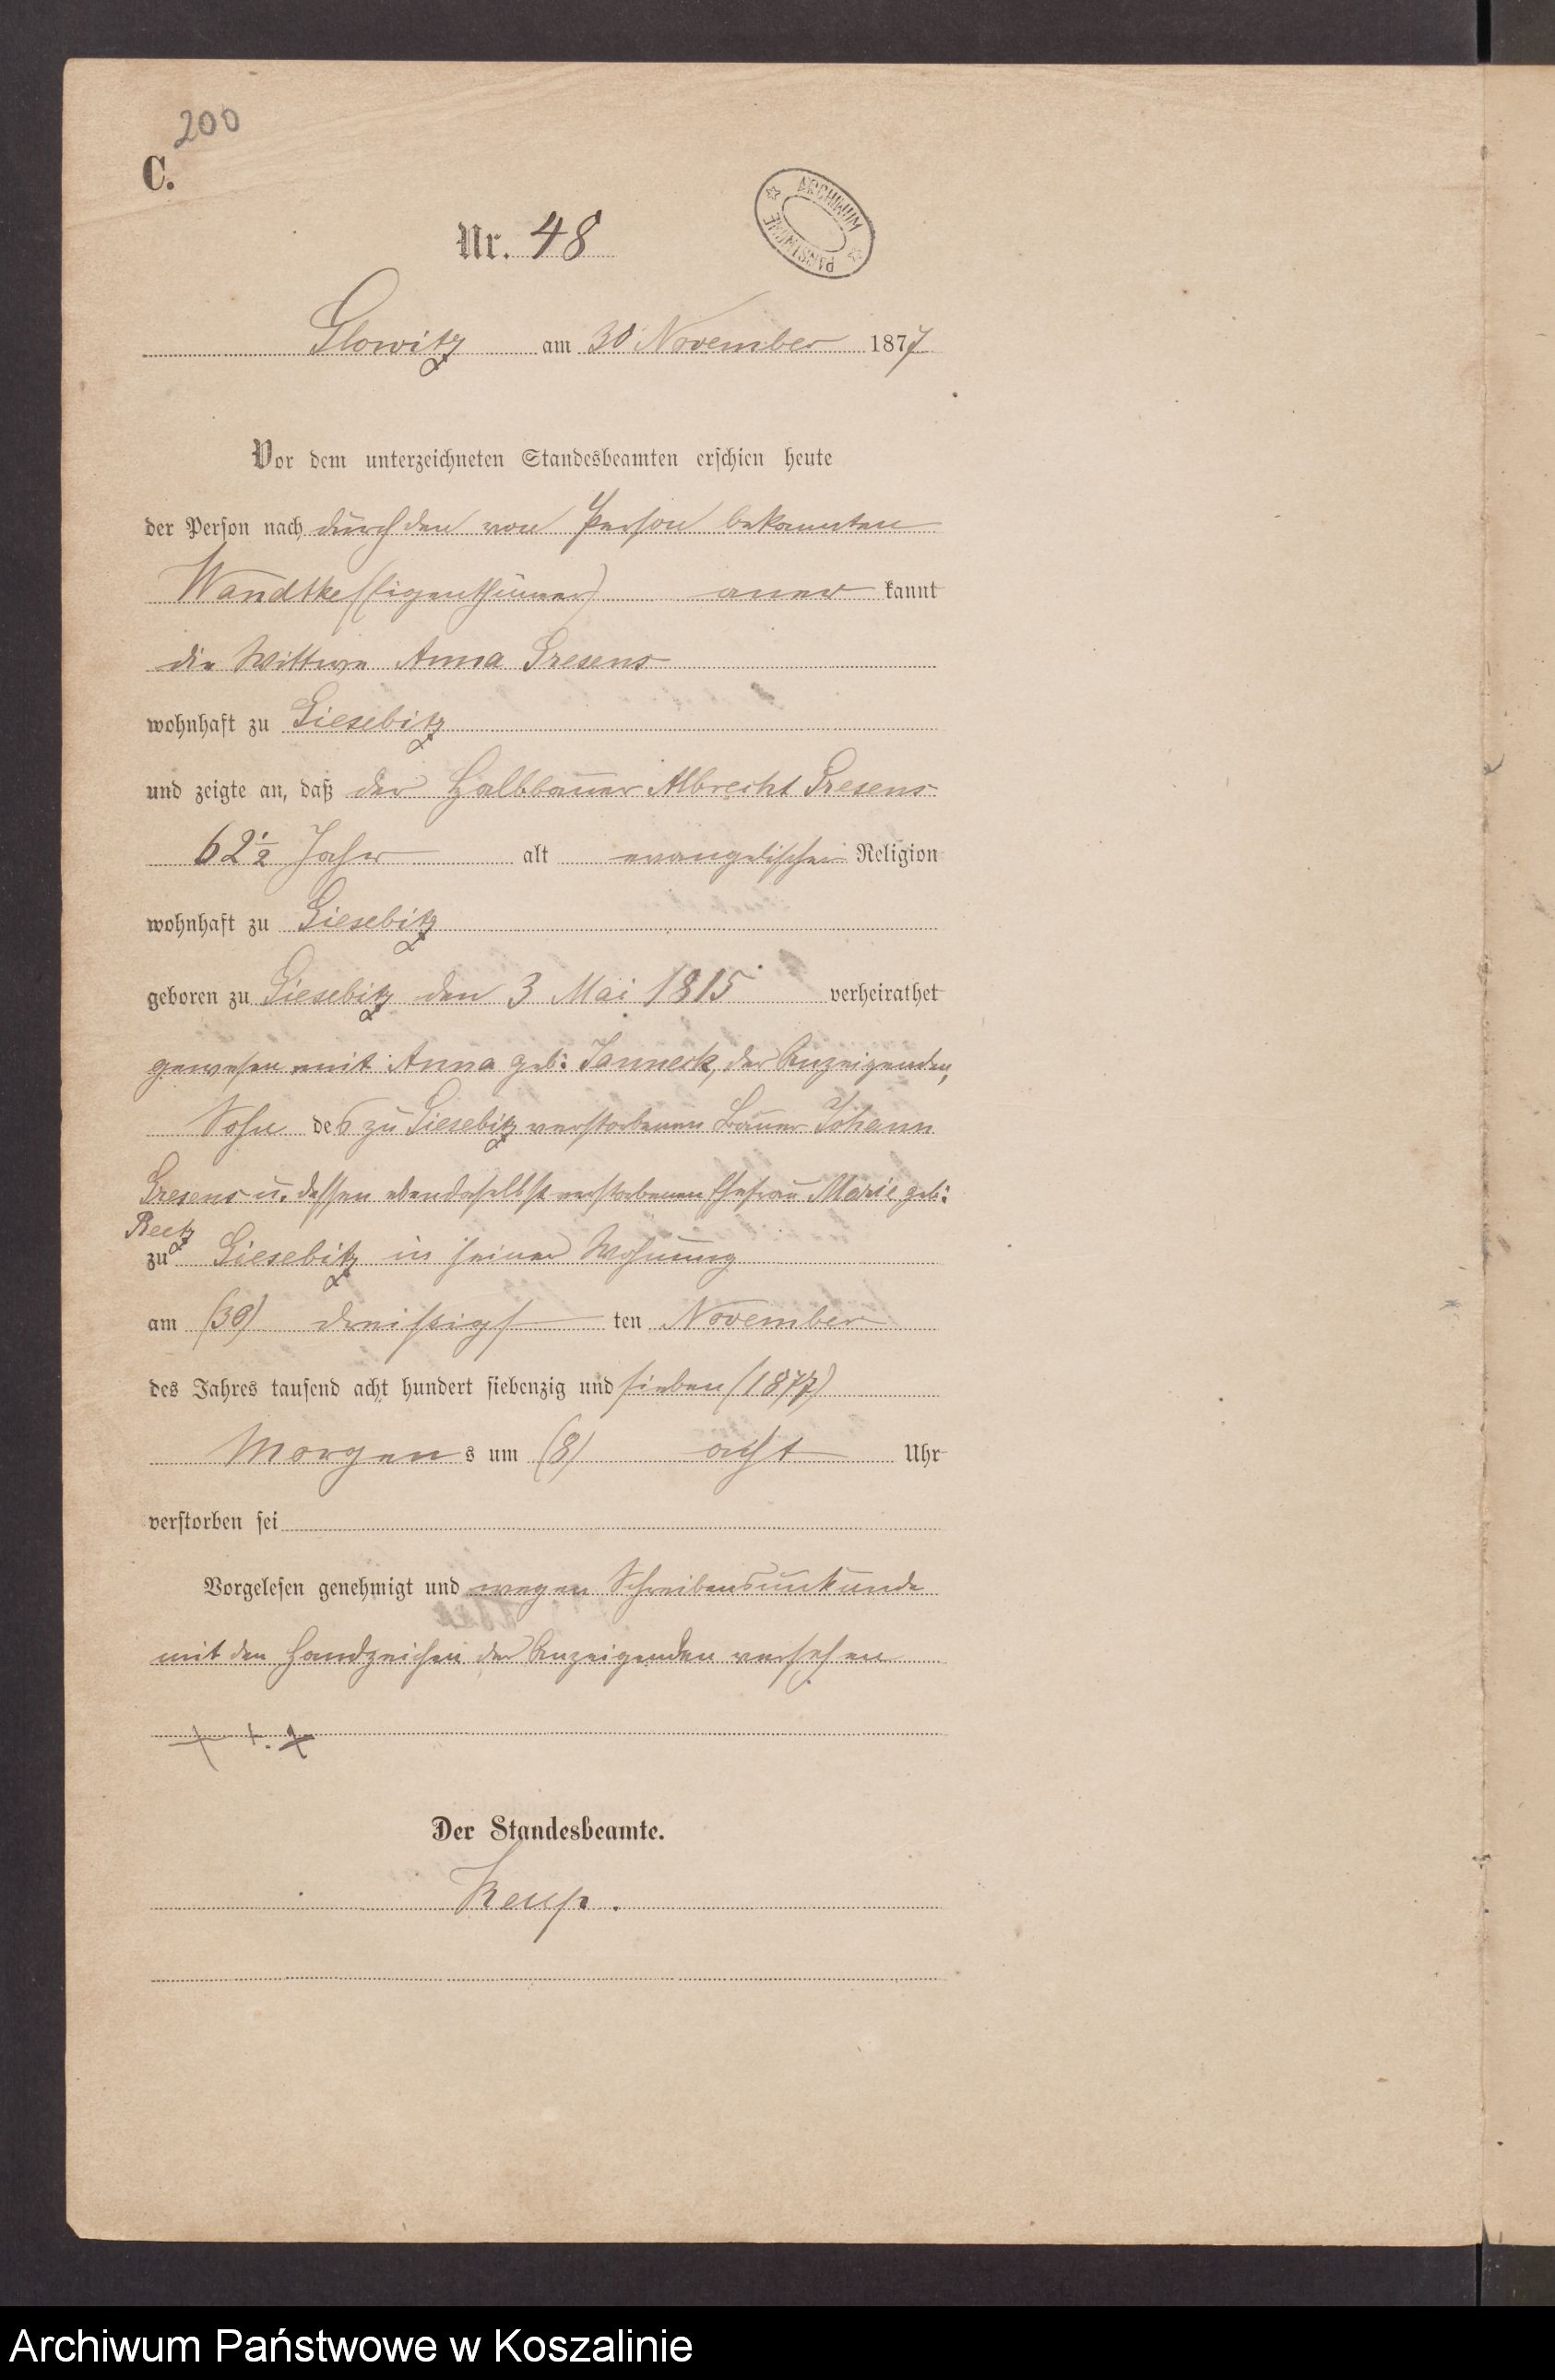 200
C.
ARCHIWUM PAŃSTWOWE
Nr. 48
Glowitz am 30 November 1877
Vor dem unterzeichneten Standesbeamten erschien heute
der Person nach durch den von Person bekannten
Wandtke (Eigenthümer) aner kannt
die Wittwe Anna Gresens
wohnhaft zu Giesebitz
und zeigte an, daß der Halbbauer Albrecht Gresens
62 1/2 Jahr alt evangelischer Religion
wohnhaft zu Giesebitz
geboren zu Giesebitz den 3 Mai 1815 verheirathet
gewesen mit Anna geb: Janneck, der Anzeigenden,
Sohn des zu Giesebitz verstorbenen Bauer Johann
Gresens u. dessen ebendaselbst verstorbenen Ehefrau Marie geb:
Reetz
zu Giesebitz in seiner Wohnung
am (30) dreißigs ten November
des Jahres tausend acht hundert siebenzig und sieben (1877)
Morgen s um (8) acht Uhr
verstorben sei
Vorgelesen genehmigt und wegen Schreibensunkunde
mit den Handzeichen der Anzeigenden versehen
+ +. +
Der Standesbeamte.
Archiwum Państwowe w Koszalinie